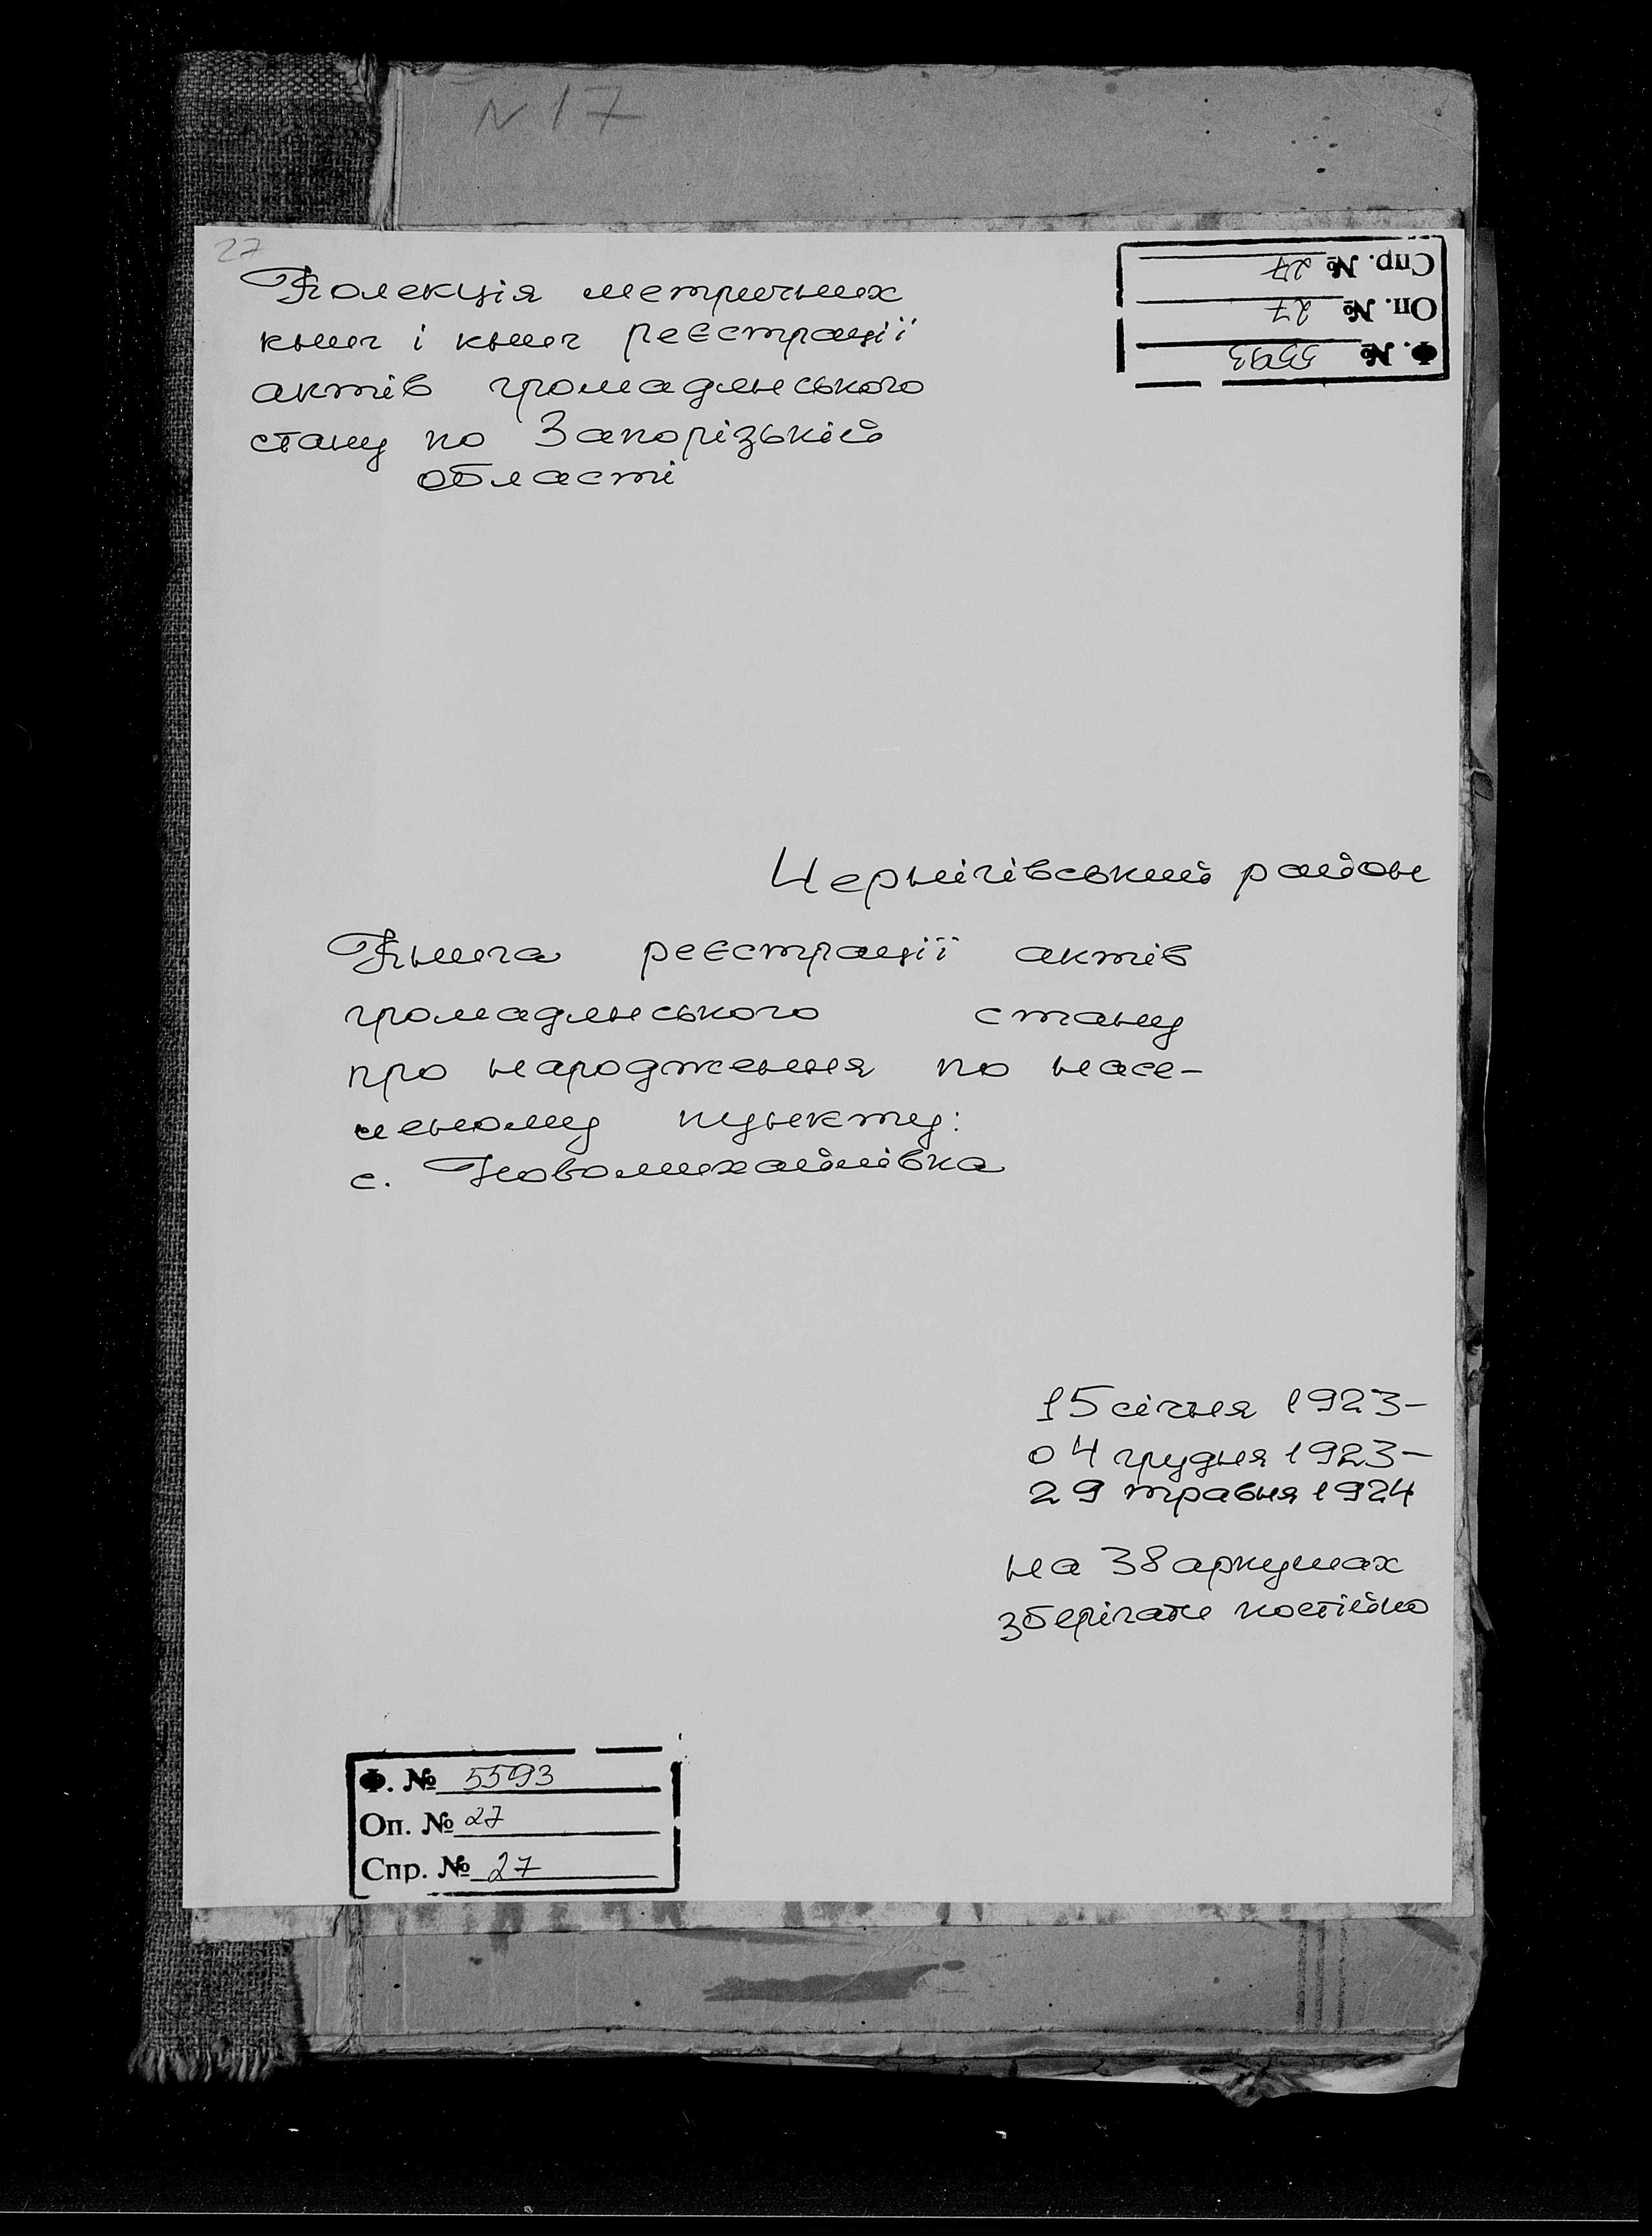 N 17
27
Колекція метричних
книг і книг реєстрації
актів громадянського
стану по Запорізькій
області
Ф. № 5593
Оп. № 27
Спр. № 27
Чернігівський район
Книга реєстрації актів
громадянського стану
про народження по насе-
леному пункту:
с. Новомихайлівка
15 січня 1923-
04 грудня 1923-
29 травня 1924
на 38 аркушах
зберігати постійно
Ф. № 5593
Оп. № 27
Спр. № 27